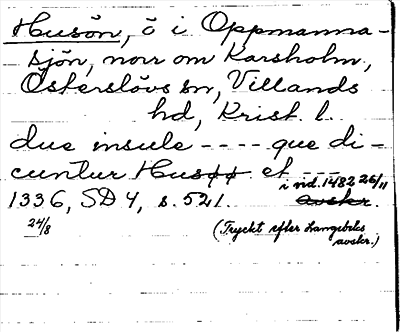 Husön, ö i Oppmanna-
sjön, norr om Karsholm,
Österslövs sn, Villands
hd, Krist. l.
due insule ---- que di-
cuntur Husøø et ---
i vid. 1482 26/11
1336, SD 4, s. 521. avskr.
24/8 (Tryckt efter Langebeks
avskr.)